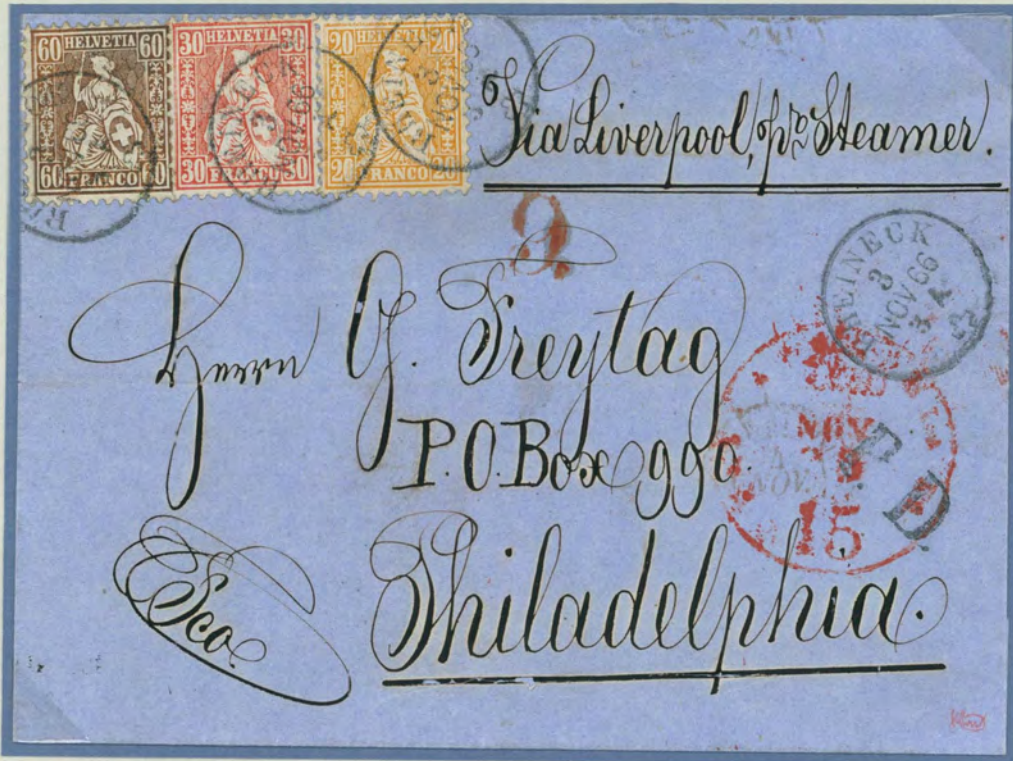 60 HELVETIA 60
60 FRANCO 60
30 HELVETIA 30
30 FRANCO 30
20 HELVETIA 20
20 FRANCO 20
Via Liverpool, pr Steamer.
RHEINECK
3
NOV 66
3
Herrn G. Freytag
P.O. Box 990.
Philadelphia.
fco
NOV
15